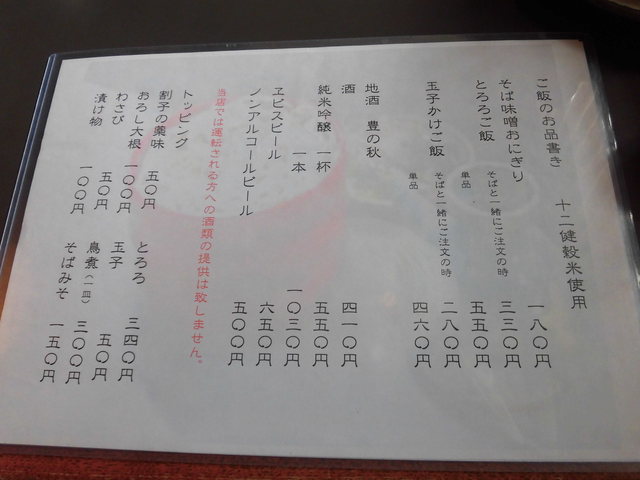 ご飯のお品書き　十二健穀米使用
そば味噌おにぎり　一八〇円
とろろご飯　そばと一緒にご注文の時　三三〇円
単品　五五〇円
玉子かけご飯　そばと一緒にご注文の時　二八〇円
単品　四六〇円
地酒　豊の秋
酒　四一〇円
純米吟醸　一杯　五五〇円
一本　一〇三〇円
ヱビスビール　六五〇円
ノンアルコールビール　五〇〇円
当店では運転される方への酒類の提供は致しません。
トッピング
割子の薬味　五〇円
おろし大根　一〇〇円
わさび　五〇円
漬け物　一〇〇円
とろろ　三四〇円
玉子　五〇円
鳥煮（一皿）　三〇〇円
そばみそ　一五〇円